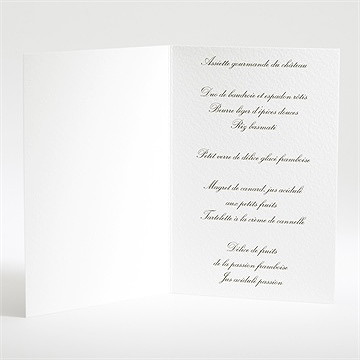 Assiette gourmande du château
Duo de baudroie et espadon rôtis
Beurre léger d'épices douces
Riz basmati
Petit verre de délice glacé framboise
Magret de canard, jus acidulé
aux petits fruits
Tartelette à la crème de cannelle
Délice de fruits
de la passion framboise
Jus acidulé passion